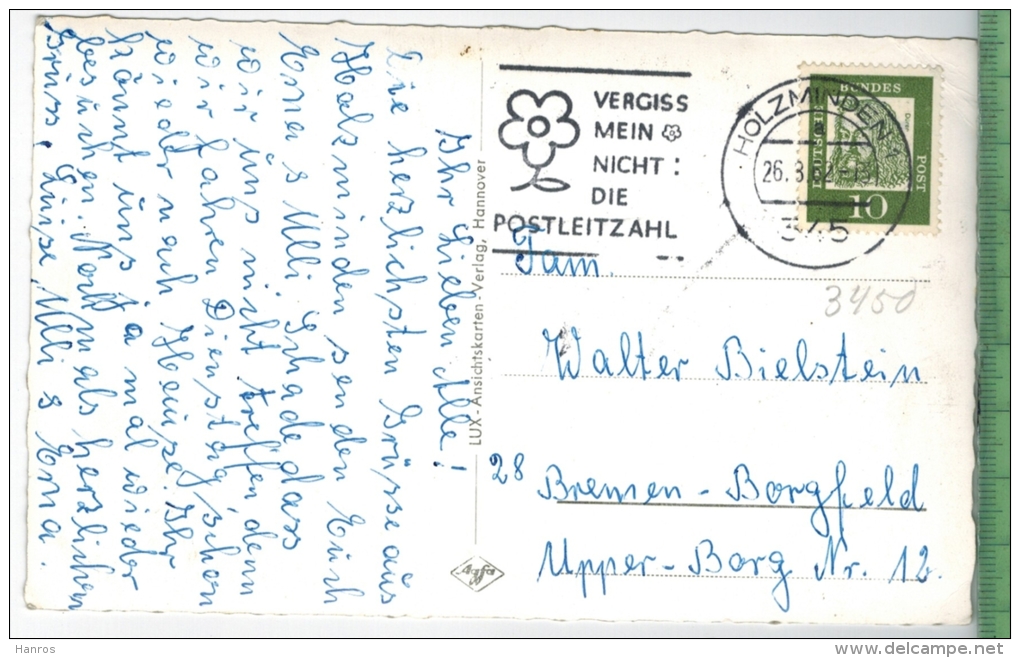 Ihr Lieben Alle!
Die herzlichsten Grüsse aus
Holzminden senden Euch
Erna & Ulli Schade dass
wir uns nicht treffen denn
wir fahren Dienstag schon
wieder nach Hause. Ihr
könnt uns ja mal wieder
besuchen. Nochmals herzlichen
Gruss, Luise, Ulli & Erna.
LUX-Ansichtskarten-Verlag, Hannover
Agfa
VERGISS
MEIN
NICHT:
DIE
POSTLEITZAHL
HOLZMINDEN
a
26.8.62
345
DEUTSCHE
BUNDES
POST
10
3450
Fam.
Walter Bielstein
28 Bremen-Borgfeld
Upper-Borg Nr. 12.
Hanros
delcampe.net